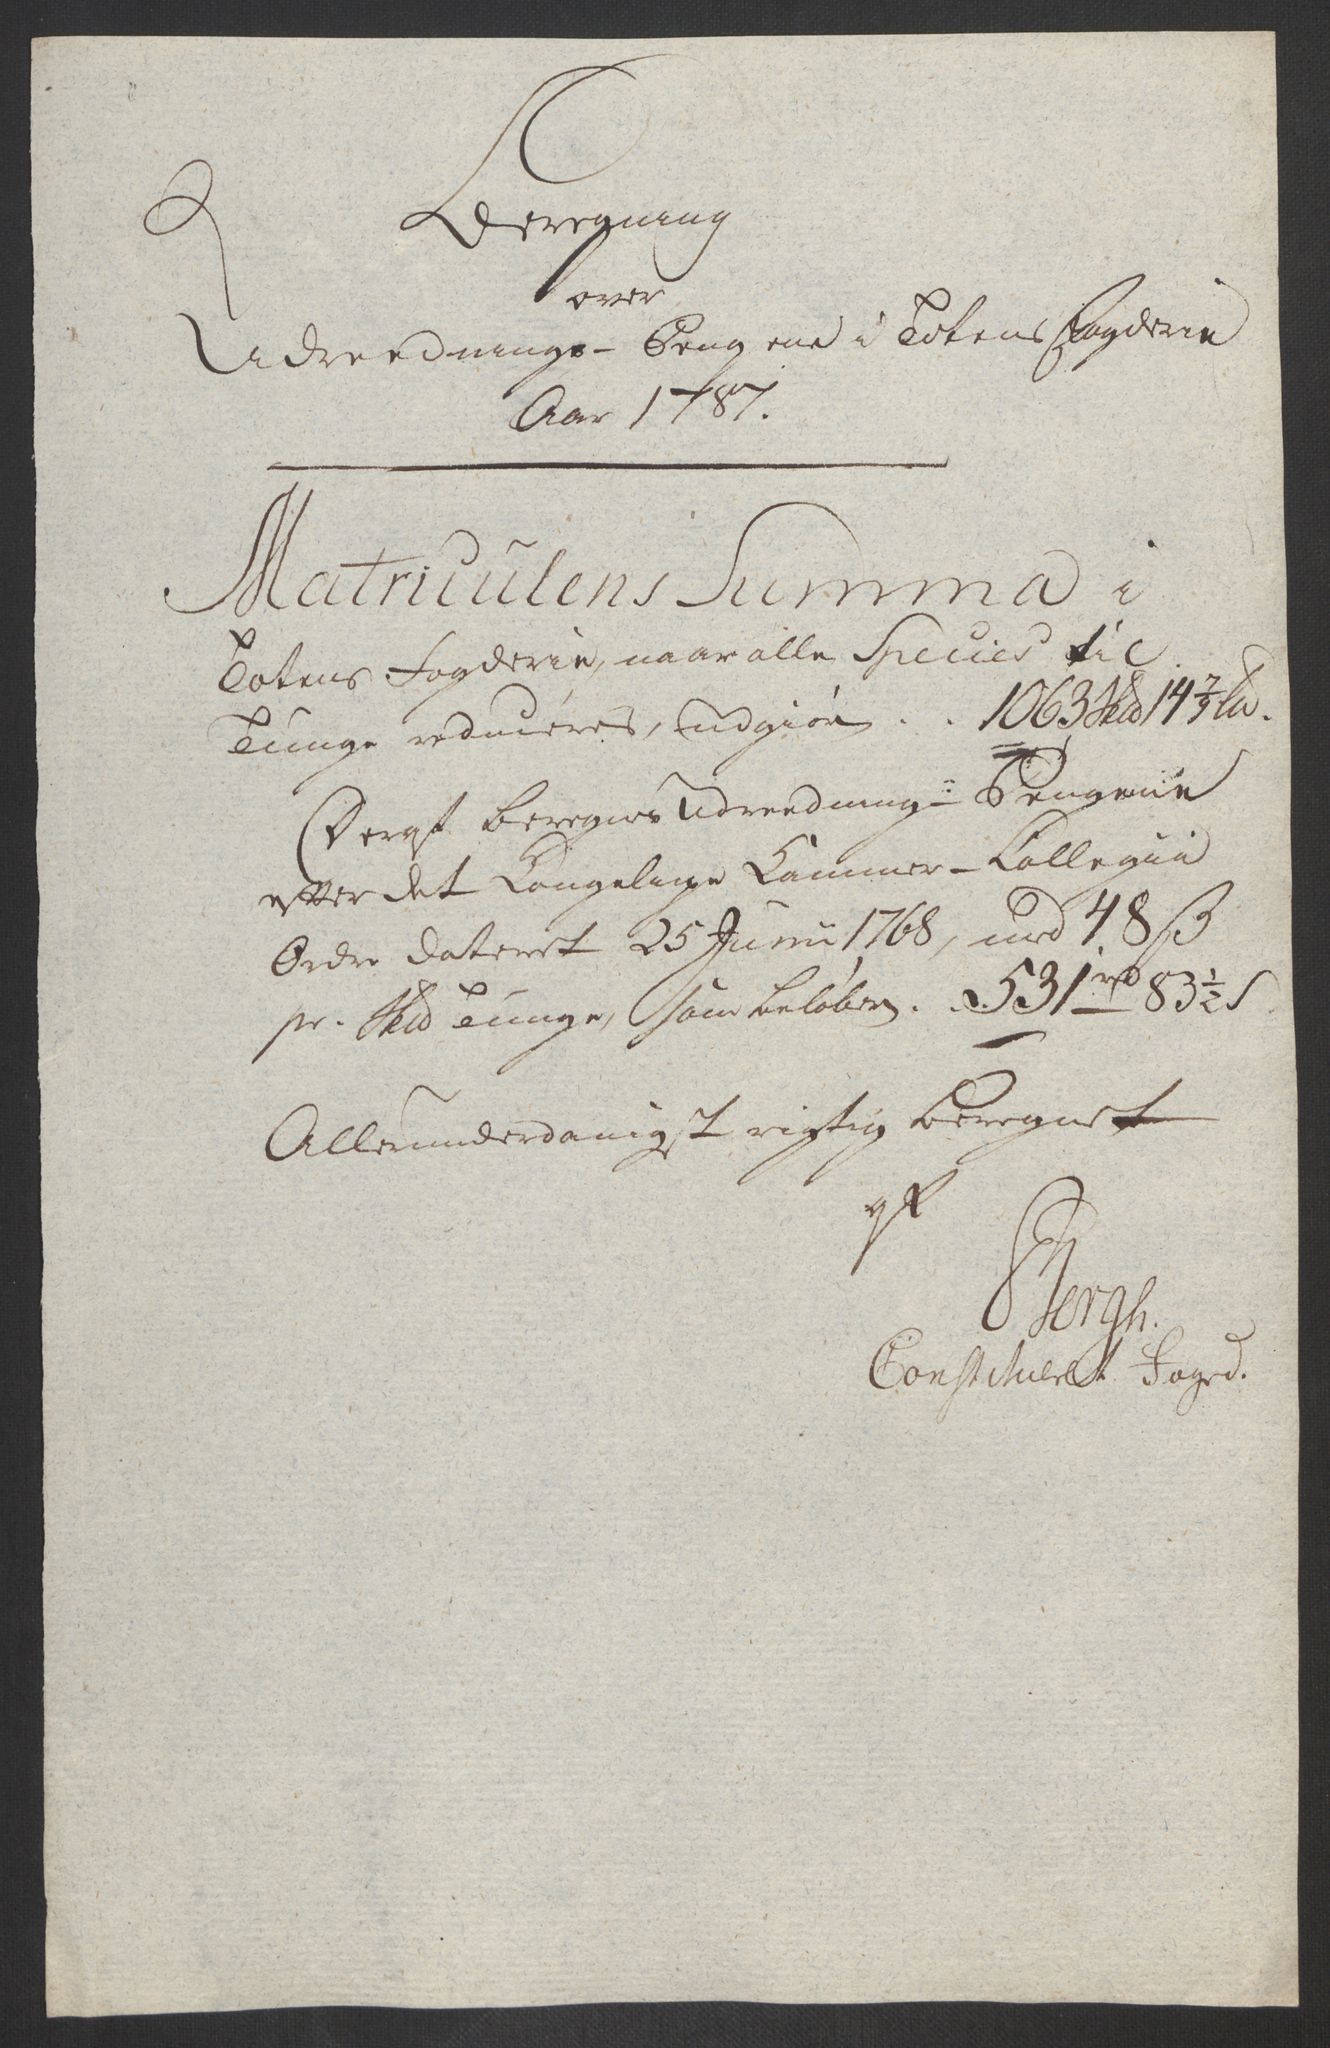 Beregning
over
Udreednings-Pengene i Totens Fogderie
Aar 1787.
Matriculens Summa i
Totens Fogderie, naar alle Species til
Tunge reduceres, Udgiør . . 1063 Skd 14 7/9 Ld.
Deraf beregnes Udreednings-Pengene
efter det Kongelige Kammer-Collegii
Ordre dateret 25 Junii 1768, med 48 ß
pr. Skd Tunge, som beløber . . 531 rd 83 1/2 s
Allerunderdanigst rigtig beregnet
af
Bergh.
Constitueret Foged.